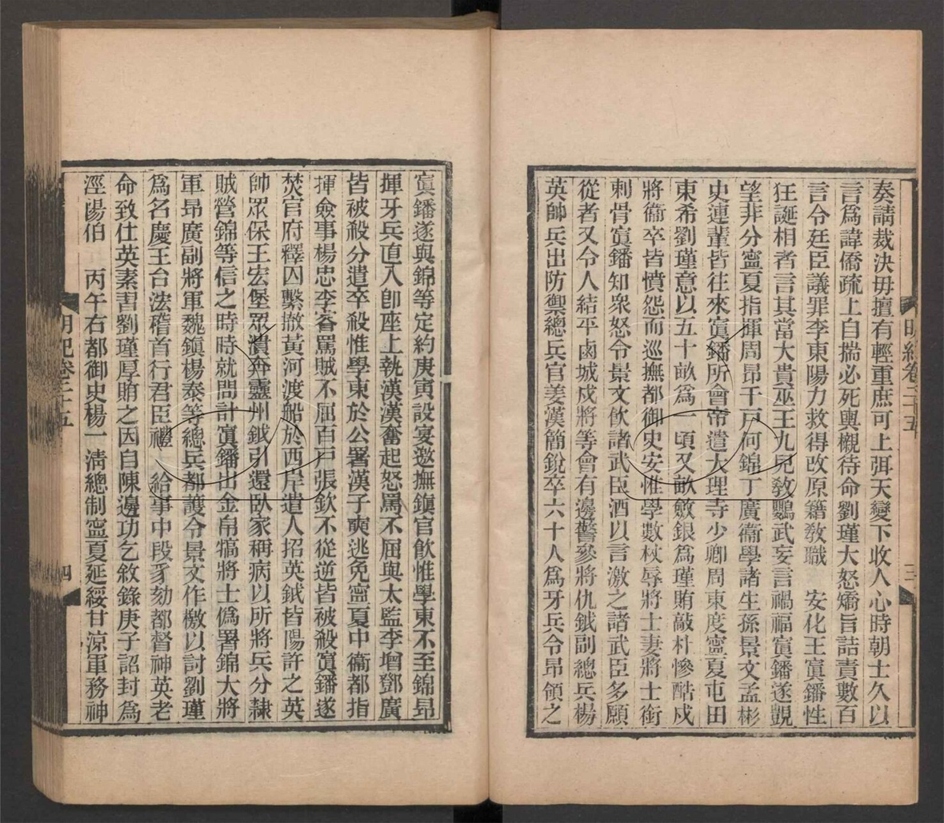 奏請裁決毋擅有輕重庶可上弭天變下收人心時朝士久以
言爲諱僑疏上自揣必死輿櫬待命劉瑾大怒矯旨詰責數百
言令廷臣議罪李東陽力救得改原籍敎職　安化王寘鐇性
狂誕相者言其當大貴巫王九兒敎鸚武妄言禍福寘鐇遂覬
望非分寧夏指揮周昂千戶何錦丁廣衞學諸生孫景文孟彬
史連輩皆往來寘鐇所會帝遣大理寺少卿周東度寧夏屯田
東希劉瑾意以五十畝爲一頃又畝斂銀爲瑾賄敲朴慘酷戍
將衞卒皆憤怨而巡撫都御史安惟學數杖辱將士妻將士銜
刺骨寘鐇知衆怒令景文飮諸武臣酒以言激之諸武臣多願
從者又令人結平鹵城戍將等會有邊警參將仇鉞副總兵楊
英帥兵出防禦總兵官姜漢簡銳卒六十人爲牙兵令昂領之
明紀卷三十五
三
寘鐇遂與錦等定約庚寅設宴邀撫鎭官飮惟學東不至錦昂
揮牙兵直入卽座上執漢漢奮起怒罵不屈與太監李增鄧廣
皆被殺分遣卒殺惟學東於公署漢子奭逃免寧夏中衞都指
揮僉事楊忠李睿罵賊不屈百戶張欽不從逆皆被殺寘鐇遂
焚官府釋囚繫撤黃河渡船於西岸遣人招英鉞皆陽許之英
帥眾保王宏堡眾潰奔靈州鉞引還臥家稱病以所將兵分隸
賊營錦等信之時時就問計寘鐇出金帛犒將士僞署錦大將
軍昂廣副將軍魏鎭楊泰等總兵都護令景文作檄以討劉瑾
爲名慶王台浤稽首行君臣禮　給事中段豸劾都督神英老
命致仕英素習劉瑾厚賄之因自陳邊功乞敘錄庚子詔封爲
涇陽伯　丙午右都御史楊一淸總制寧夏延綏甘涼軍務神
明紀卷三十五
四